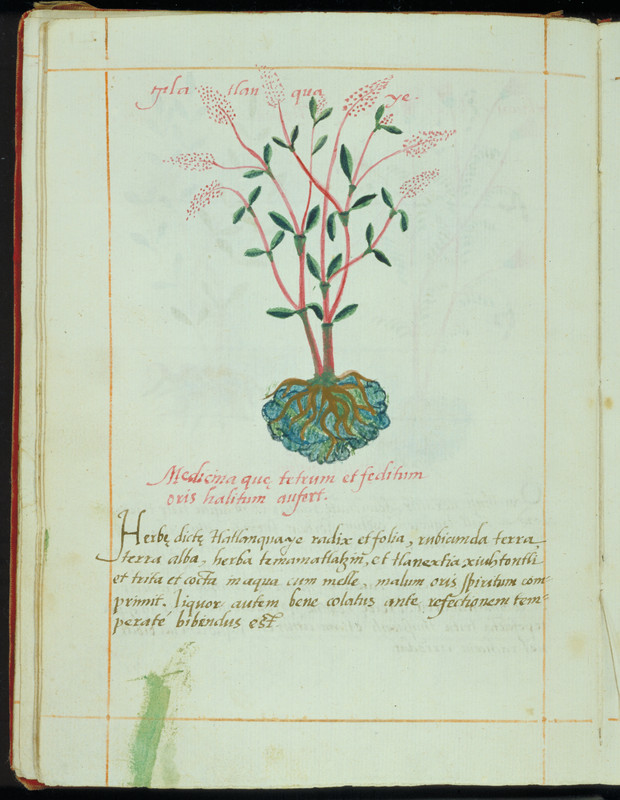 Tla tlan qua ye.
Medicina quę tetrum et feditum
oris halitum aufert.
Herbę dictę tlatlanquaye radix et folia, rubicunda terra,
terra alba, herba temamatlatzin, et tlanextia xiuhtontli
et trita et cocta in aqua cum melle, malum oris spiritum com=
primit. liquor autem bene colatus ante refectionem tem=
peraté bibendus est